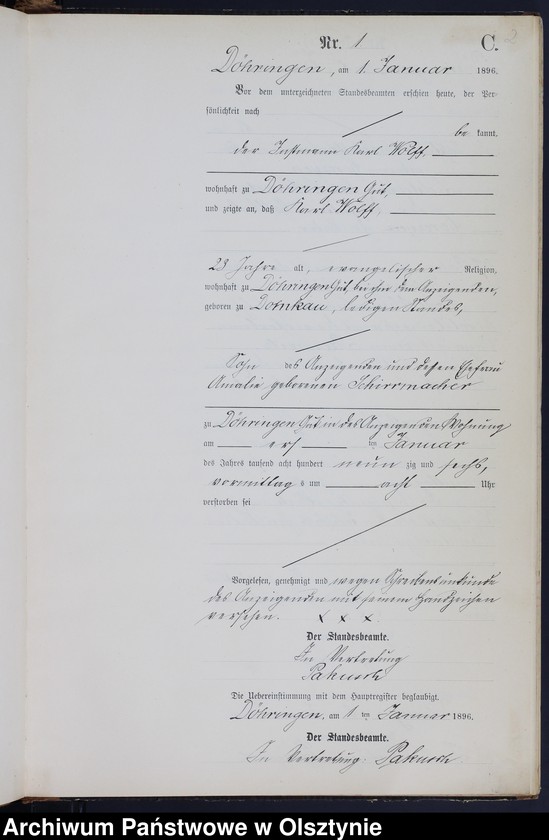 Nr. 1 C. 2
Döhringen, am 1. Januar 1896.
Vor dem unterzeichneten Standesbeamten erschien heute, der Per-
sönlichkeit nach
be kannt,
der Instmann Karl Wolff,
wohnhaft zu Döhringen Gut,
und zeigte an, daß Karl Wolff,
23 Jahre alt, evangelischer Religion,
wohnhaft zu Döhringen Gut, bei ihm dem Anzeigenden,
geboren zu Domkau, ledigen Standes,
Sohn des Anzeigenden und dessen Ehefrau
Amalie geborenen Schirrmacher
zu Döhringen Gut in des Anzeigenden Wohnung
am ersten Januar
des Jahres tausend acht hundert neun zig und sechs,
vormittags um acht Uhr
verstorben sei
Vorgelesen, genehmigt und wegen Schreibensunkunde
des Anzeigenden mit seinem Handzeichen
versehen. x x x
Der Standesbeamte.
In Vertretung
Die Uebereinstimmung mit dem Hauptregister beglaubigt.
Döhringen, am 1 ten Januar 1896.
Der Standesbeamte.
In Vertretung.
Archiwum Państwowe w Olsztynie